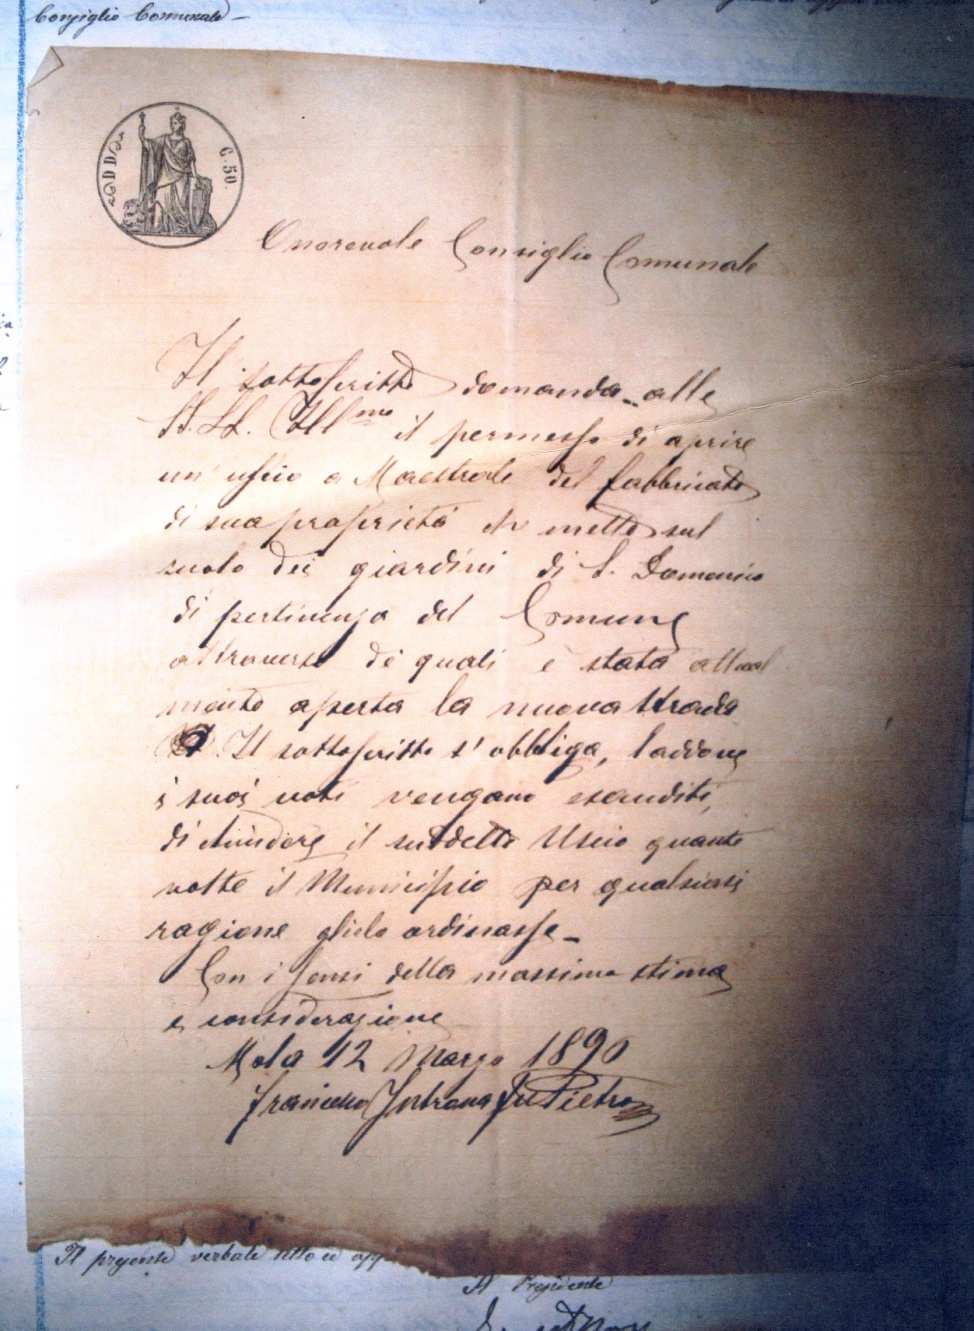 Consiglio Comunale
C. 50.
Onorevole Consiglio Comunale
Il sottoscritto domanda alle
SS. LL. Ill.me il permesso di aprire
un' uscio a Maestrale del fabbricato
di sua proprietà che mette sul
suolo dei giardini di S. Domenico
di pertinenza del Comune
attraverso de' quali è stata attual
mente aperta la nuova strada
Il sottoscritto s' obbliga, laddove
i suoi voti vengano esauditi,
di chiudere il suddetto Uscio quante
volte il Municipio per qualsiasi
ragione glielo ordinasse_
Con i sensi della massima stima
e considerazione
Mola 12 Marzo 1890
Francesco fu Pietro
Il presente verbale letto ed app
Il Presidente